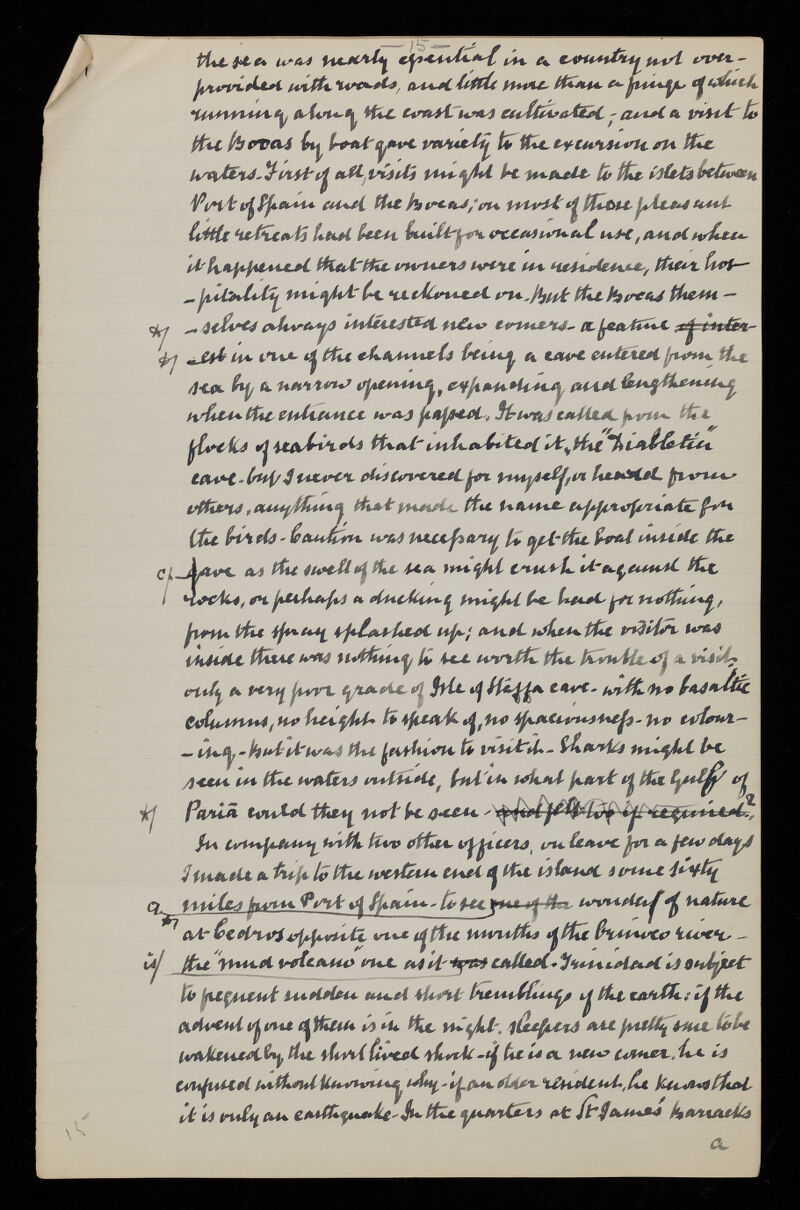 — 15 —
the sea was nearly essential in a country not over-
provided with roads, and little more than a fringe of which
running along the coast was cultivated; and a visit to
the Bocas by boat gave variety to the excursion on the
waters. First of all, visits might be made to the islets between
Port of Spain and the Bocas; on most of these pleasant
little retreats had been built for occasional use, and when
it happened that the owners were in residence, their hos-
-pitality might be reckoned on. But the Bocas them-
-selves always interested new comers - a feature of inter-
-est in one of the channels being a cave entered from the
sea by a narrow opening, expanding and lengthening
when the entrance was passed. It was called from the
flocks of seabirds that inhabited it, the "Diabletin"
cave - but I never discovered for myself, or heard from
others, anything that made the name appropriate for
the birds - Caution was necessary to get the boat inside the
c/ cave as the swell of the sea might crush it against the
rocks, or perhaps a ducking might be had for nothing,
from the spray splashed up; and when the visitor was
inside there was nothing to see worth the trouble of a visit,
only a very poor grade of Isle of Staffa cave - with no basaltic
columns, no height to speak of, no spaciousness - no colour-
-ing - But it was the fashion to visit it - Sharks might be
seen in the waters outside, but in what part of the Gulf of
Paria could they not be seen - and felt too if required?
In company with two other officers, on leave for a few days
I made a trip to the western end of the island some sixty
a miles from Port of Spain - to see one of the wonders of nature
at Cedros opposite one of the mouths of the Orinoco river -
is/ the "mud volcano" one as it was called - Trinidad is subject
to frequent sudden and short tremblings of the earth: if the
advent of one of them is in the night, sleepers are pretty sure to be
wakened by the short lived shock - if he is a new comer, he is
confused without knowing why - if an older resident, he knows that
it is only an earthquake - In the quarters at St James's Barracks
a
15